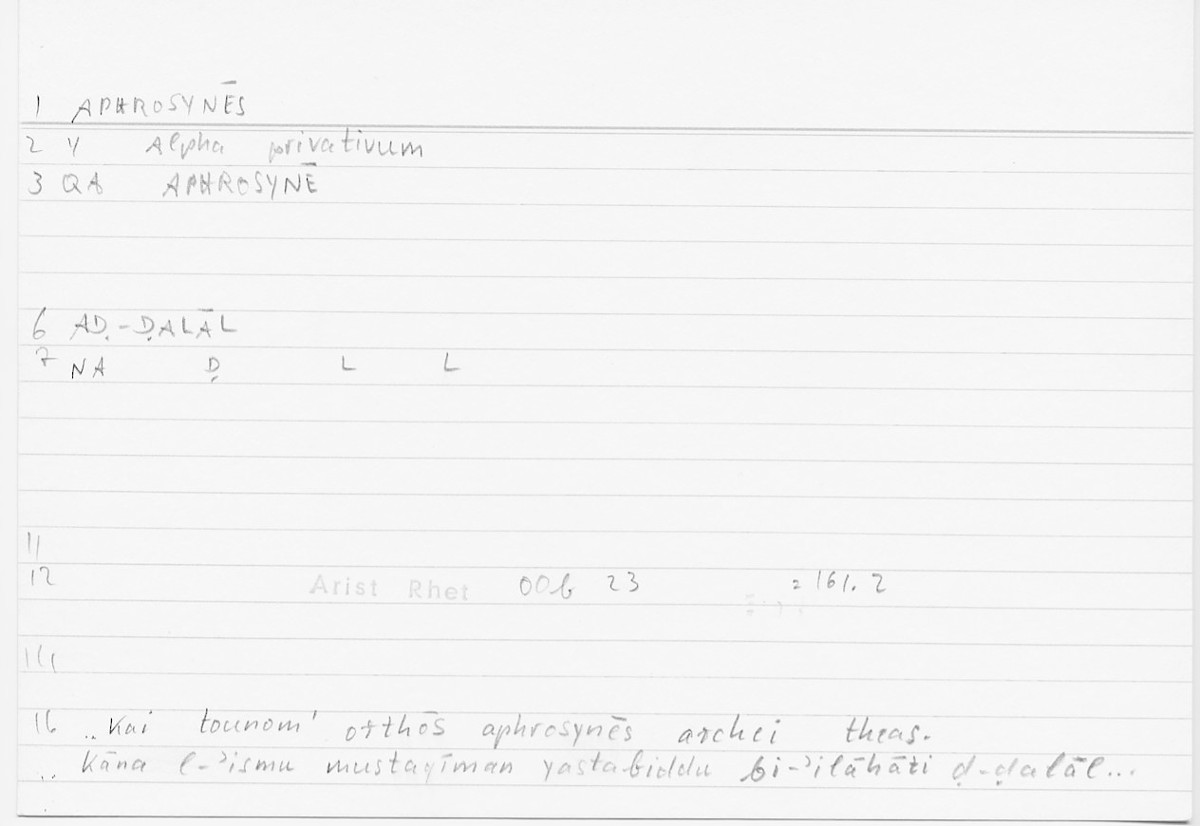 1 APHROSYNĒS
2 Y Alpha privativum
3 QA APHROSYNĒ
6 AḌ-ḌALĀL
7 NA Ḍ L L
11
12 Arist Rhet 00b 23 = 161.2
14
16 ..Kai tounom' orthōs aphrosynēs archei theas.
.. Kāna l-ʾismu mustaqīman yastabiddu bi-ʾilāhāti ḍ-ḍalāl...